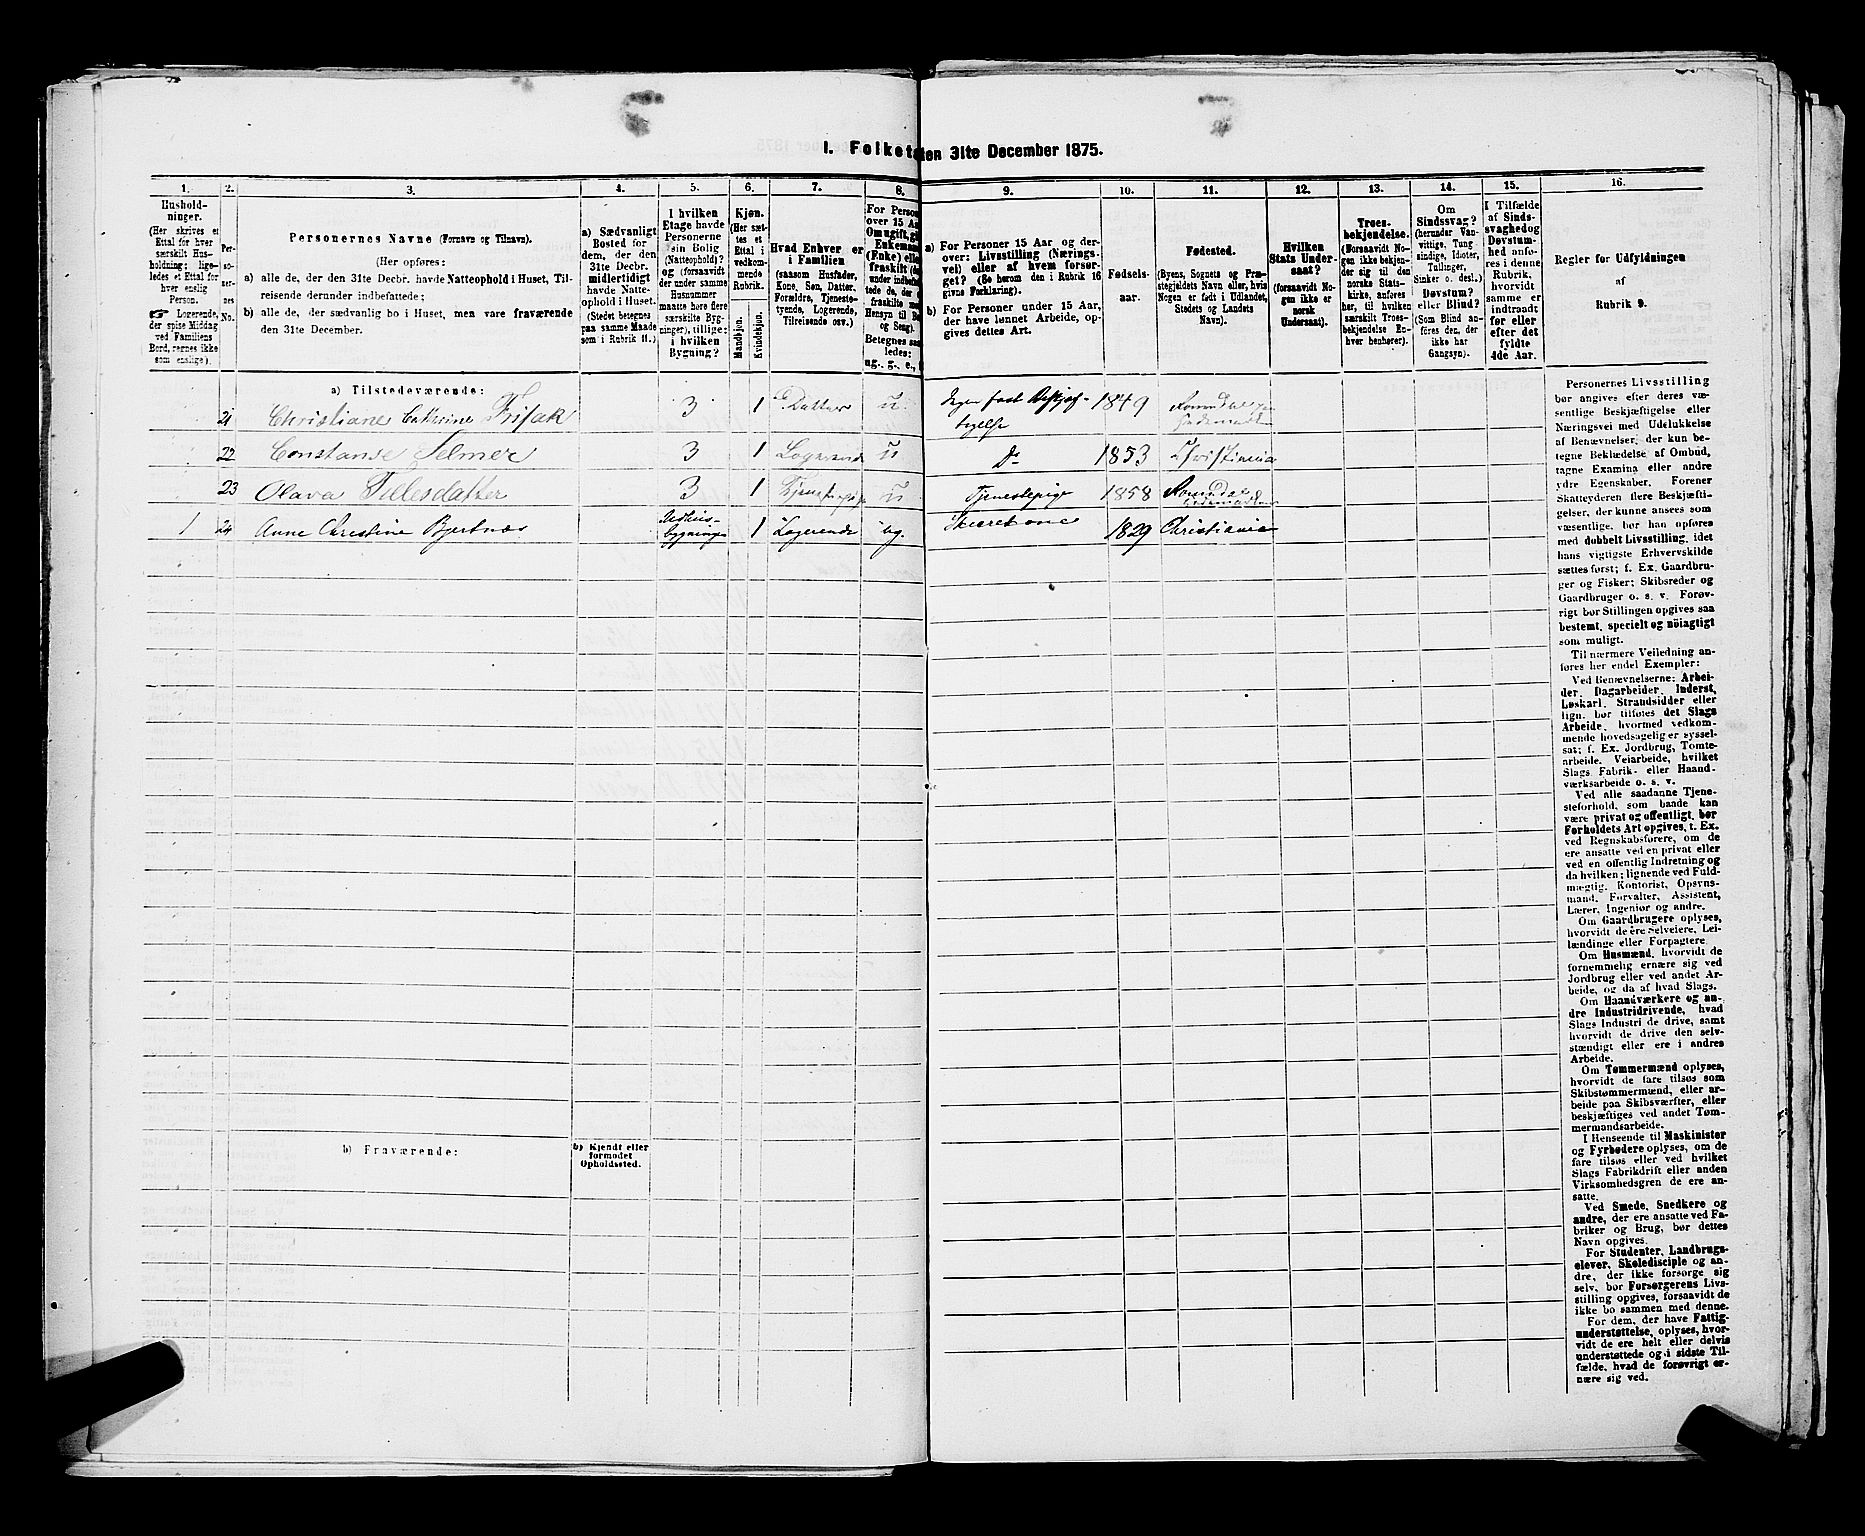 I. Folketallen 31te December 1875.
1. 2. 3. 4. 5. 6. 7. 8. 9. 10. 11. 12. 13. 14. 15. 16.
Hushold-
ninger.
(Her skrives et
Ettal for hver
særskilt Hus-
holdning; lige-
ledes et Ettal for
hver enslig
Person.
☛ Logerende,
der spise Middag
ved Familiens
Bord, regnes ikke
som enslige).
Per-
so-
ner-
nes
No.
Personernes Navne (Fornavn og Tilnavn).
(Her opføres:
a) alle de, der den 31te Decbr. havde Natteophold i Huset, Til-
reisende derunder indbefattede;
b) alle de, der sædvanlig bo i Huset, men vare fraværende
den 31te December.
a) Sædvanligt
Bosted for
dem, der den
31te Decbr.
midlertidigt
havde Natte-
ophold i Huset.
(Stedet betegnes
paa samme Maade
som i Rubrik 11.)
I hvilken
Etage havde
Personerne
sin Bolig
(Natteophold)?
og (forsaavidt
der under samme
Husnummer
maatte høre flere
særskilte Byg-
ninger), tillige:
i hvilken
Bygning?
Kjøn.
(Her sæt-
tes et
Ettal i
vedkom-
mende
Rubrik.
Mandkjøn.
Kvindekjøn.
Hvad Enhver er
i Familien
(saasom Husfader,
Kone, Søn, Datter,
Forældre, Tjeneste-
tyende, Logerende,
Tilreisende osv.)
For Person
over 15 Aar
Om ugift, gi
Enkeman
(Enke) elle
fraskilt (de
under indbefat
tede de, der e
fraskilte me
Hensyn til Bo
og Seng).
Betegnes saa
ledes:
ug., g., e.,
a) For Personer 15 Aar og der-
over: Livsstilling (Nærings-
vei) eller af hvem forsør-
get? (Se herom den i Rubrik 16
givne Forklaring).
b) For Personer under 15 Aar,
der have lønnet Arbeide, op-
gives dettes Art.
Fødsels-
aar.
Fødested.
(Byens, Sognets og Præ-
stegjeldets Navn eller, hvis
Nogen er født i Udlandet,
Stedets og Landets
Navn).
Hvilken
Stats Under-
saat?
(forsaavidt No-
gen ikke er
norsk
Undersaat).
Troes-
bekjendelse.
(Forsaavidt No-
gen ikke bekjen-
der sig til den
norske Stats-
kirke, anføres
her, til hvilken
særskilt Troes-
bekjendelse En-
hver henhører).
Om
Sindssvag?
(herunder Van-
vittige, Tung
sindige, Idioter,
Tullinger,
Sinker o. desl.)
Døvstum?
eller Blind?
(Som Blind an-
føres den, der
ikke har
Gangsyn).
I Tilfælde
af Sinds-
svaghed og
Døvstum-
hed anfø-
res i denne
Rubrik,
hvorvidt
samme er
indtraadt
før eller
efter det
fyldte
4de Aar.
Regler for Udfyldningen
af
Rubrik 9.
a) Tilstedeværende:
21 Christiane Cathrine Frisak 3 1 Datter u. Ingen fast Beskjæf- 1849 Romedal
tigelse Hedemarken
22 Constanse Selmer 3 1 Logerende u Do 1853 Christiania
23 Olava Tillesdatter 3 Tjenestepige u Tjenestepige 1858 Romedal
Hedemarken
1 24 Anne Christine Bjertnæs Udhus- 1 Logerende ug. 1829 Christiania
bygningen
b) Fraværende:
b) Kjendt eller
formodet
Opholdssted.
Personernes Livsstilling
bør angives efter deres væ-
sentlige Beskjæftigelse eller
Næringsvei med Udelukkelse
af Benævnelser, der kun be-
tegne Beklædelse af Ombud,
tagne Examina eller andre
ydre Egenskaber. Forener
Skatteyderen flere Beskjæfti-
gelser, der kunne ansees som
væsentlige, bør han opføres
med dobbelt Livsstilling, idet
hans vigtigste Erhvervskilde
sættes først; f. Ex. Gaardbru-
ger og Fisker; Skibsreder og
Gaardbruger o. s. v. Forøv-
rigt bør Stillingen opgives saa
bestemt, specielt og nöiagtigt
som muligt.
Til nærmere Veiledning an-
føres her endel Exempler:
Ved Benævnelserne: Arbei-
der, Dagarbeider, Inderst,
Løskarl, Strandsidder eller
lign. bør tilføies det Slags
Arbeide, hvormed vedkom-
mende hovedsagelig er syssel-
sat; f. Ex. Jordbrug, Tomte-
arbeide, Veiarbeide, hvilket
Slags Fabrik- eller Haand-
værksarbeide o. s. v.
Ved alle saadanne Tjene-
steforhold, som baade kan
være privat og offentligt, bør
Forholdets Art opgives, t. Ex.
ved Regnskabsførere, om de
ere ansatte ved en privat eller
ved en offentlig Indretning og
da hvilken; lignende ved Fuld-
mægtig, Kontorist, Opsyns-
mand, Forvalter, Assistent,
Lærer, Ingeniør og andre.
Om Gaardbrugere oplyses,
hvorvidt de ere Selveiere, Lei-
lændinge eller Forpagtere.
Om Husmænd, hvorvidt de
fornemmelig ernære sig ved
Jordbrug eller ved andet Ar-
beide, og da af hvad Slags.
Om Haandværkere og an-
dre Industridrivende, hvad
Slags Industri de drive, samt
hvorvidt de drive den selv-
stændigt eller ere i andres
Arbeide.
Om Tømmermænd oplyses,
hvorvidt de fare tilsøs som
Skibstømmermænd, eller ar-
beide paa Skibsværfter, eller
beskjæftiges ved andet Tøm-
mermandsarbeide.
I Henseende til Maskinister
og Fyrbødere oplyses, om de
fare tilsøs eller ved hvilket
Slags Fabrikdrift eller anden
Virksomhedsgren de ere an-
satte.
Ved Smede, Snedkere og
andre, der ere ansatte ved Fa-
briker og Brug, bør dettes
Navn opgives.
For Studenter, Landbrugs-
elever, Skoledisciple og an-
dre, der ikke forsørge sig
selv, bør Forsørgerens Livs-
stilling opgives, forsaavidt de
ikke bo sammen med denne.
For dem, der have Fattig-
understøttelse, oplyses, hvor-
vidt de ere helt eller delvis
understøttede og i sidste Til-
fælde, hvad de forøvrigt er-
nære sig ved.